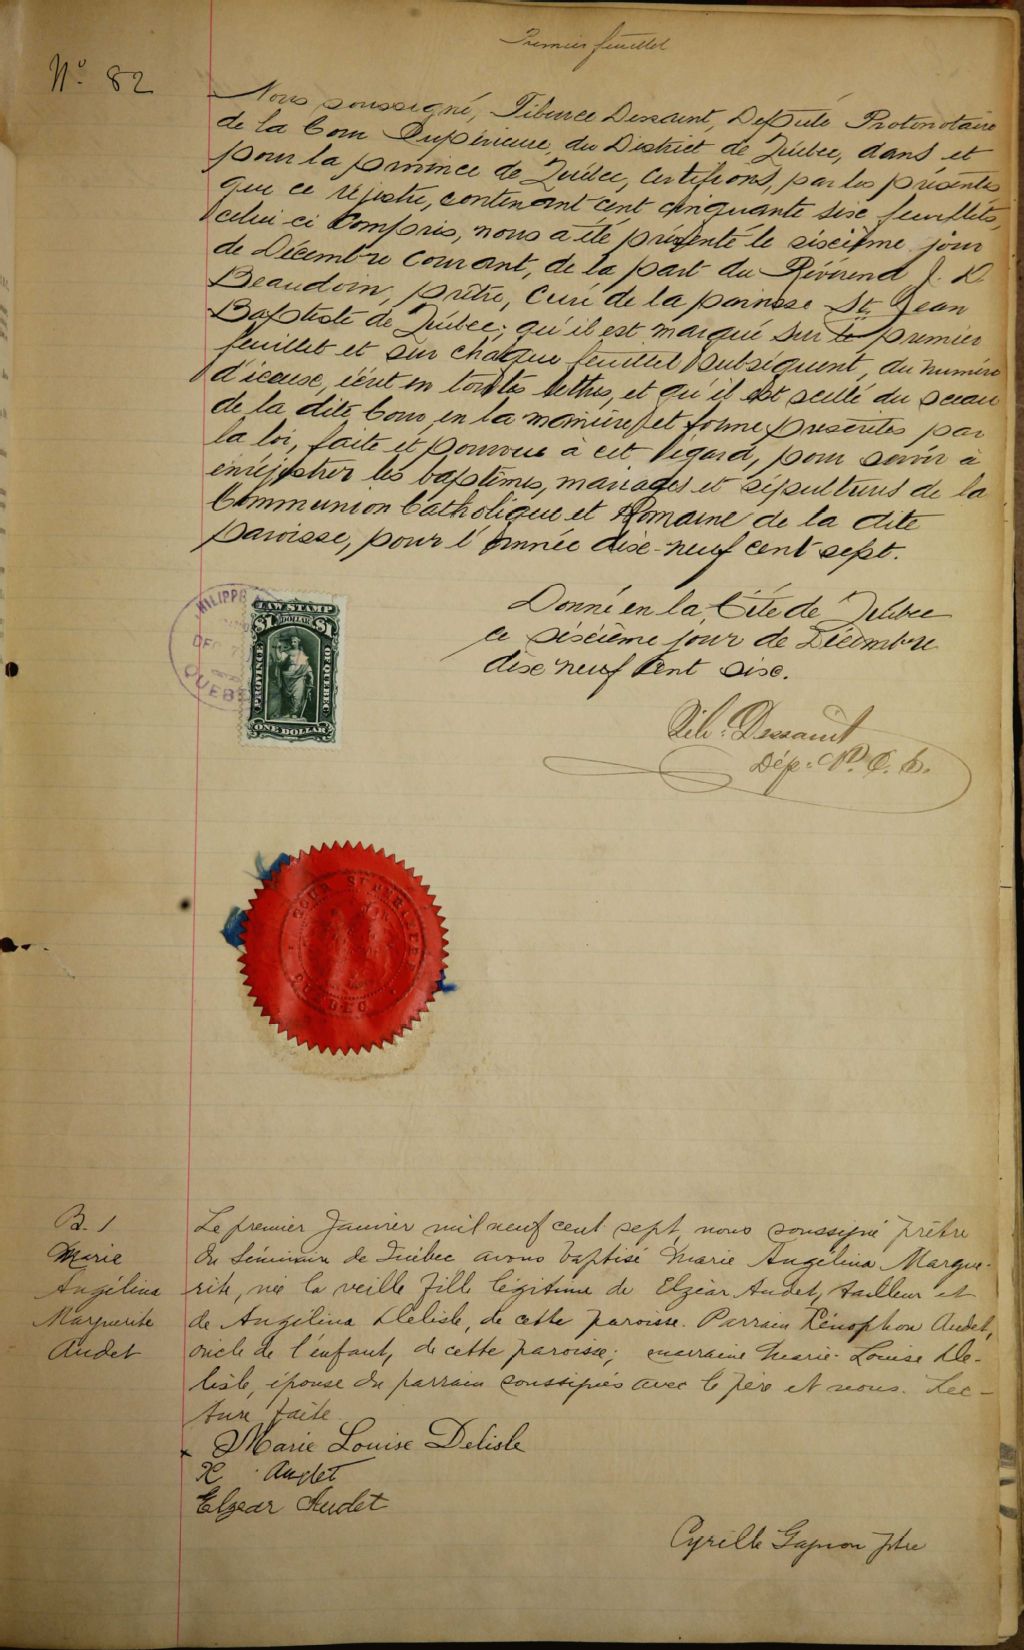 Premier feuillet
No. 82
Nous soussigné, Tiburce Dessaint, Député Protonotaire
de la Cour Supérieure, du District de Québec, dans et
pour la province de Québec, certifions, par les présentes
que ce régistre, contenant cent cinquante sise feuillets,
celui ci compris, nous a été présenté le siscième jour
de Décembre courant, de la part du Révérend J. D
Beaudoin, prêtre, curé de la paroisse St. Jean
Baptiste de Québec; qu'il est marqué sur le premier
feuillet et sur chaque feuillet subséquent, du numéro
d'iceuse, écrit en toutes lettres, et qu'il est scellé du sceau
de la dite Cour, en la manière et forme prescrites par
la loi, faite et pourvue à cet égard, pour servir à
enrégistrer les baptêmes, mariages et sépultures de la
Communion Catholique et Romaine de la dite
paroisse, pour l'année dise-neuf cent sept.
Donné en la Cité de Québec
ce siscième jour de Décembre
dise neuf cent sise.
Tib. Dessaint
Dép. P. C. S.
PHILIPPE
DEC
QUEBEC
LAW STAMP
$1 DOLLAR $1
PROVINCE OF QUEBEC
ONE DOLLAR
COUR SUPERIEURE
QUEBEC
B. 1
Marie
Angélina
Marguerite
Audet
Le premier Janvier mil neuf cent sept, nous soussigné prêtre
du Séminaire de Québec avons baptisé Marie Angélina Margue-
rite, née la veille fille légitime de Elzéar Audet, tailleur et
de Angélina Delisle, de cette paroisse. Parrain Xénophon Audet,
oncle de l'enfant, de cette paroisse; marraine Marie-Louise De-
lisle, épouse du parrain soussignés avec le père et nous. Lec-
ture faite
Marie Louise Delisle
X Audet
Elzear Audet
Cyrille Gagnon Ptre